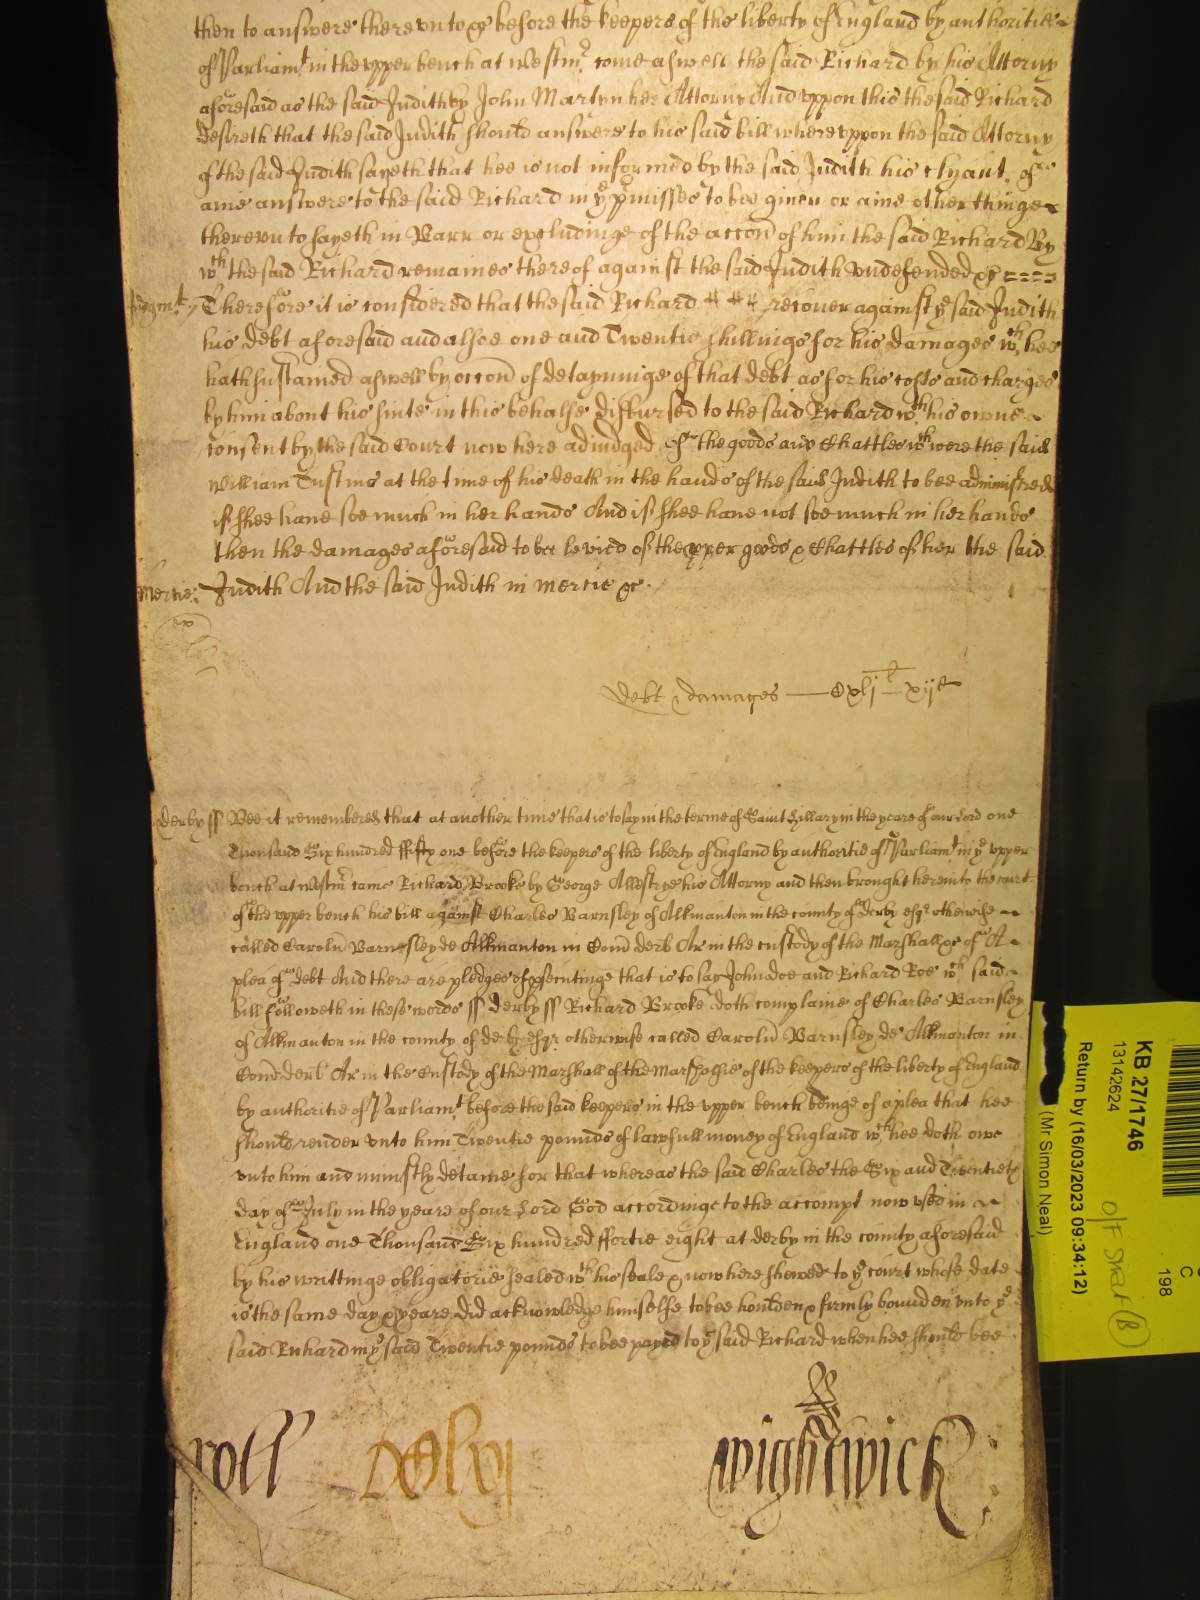 then to answere therevnto &c before the keepers of the liberty of England by authoritie
of Parliamt in the vpper bench at Westmr come aswell the said Richard by his Attorny
aforesaid as the said Judith by John Martyn her Attorny And vppon this the said Richard
desireth that the said Judith should answere to his said bill wherevppon the said Attorny
of the said Judith sayeth that hee is not informed by the said Judith his clyant of
anie answere to the said Richard in ye pmisses to bee given or anie other thinge
therevnto sayeth in Barr or excludinge of the accon of him the said Richard By
wch the said Richard remaines thereof against the said Judith vndefended &c
Judgmt // Therefore it is considered that the said Richard recover against ye said Judith
his debt aforesaid and alsoe one and Twentie shillings for his damages wch hee
hath sustained aswell by occon of detayninge of that debt as for his costs and charges
by him about his suite in this behalfe disbursed to the said Richard wth his owne
consent by the said Court now here adiudged of the goods and Chattles wch were the said
William Tustins at the time of his death in the hands of the said Judith to bee administred
if shee have soe much in her hands And if shee have not soe much in her hands
then the damages aforesaid to bee levied of the pper goods & Chattles of her the said
Mercie: Judith And the said Judith in mercie &c.
Debt & damages — Cxlj li xijd
Derby ss Bee it remembered that at another time that is to say in the terme of Saint Hillary in the yeare of our Lord one
Thousand Six hundred ffifty one before the keepers of the liberty of England by authoritie of Parliamt in ye vpper
bench at Westmr came Richard Brooke by George Allestrye his Attorny and then brought here into the court
of the vpper bench his bill against Charles Barnsley of Alkmanton in the county of derby esqr otherwise
called Carolu Barnesley de Alkmanton in Com derb Ar in the custody of the Marshall &c of A
plea of debt And there are pledges of psecutinge that is to say John doe and Richard Roe wch said
bill followeth in these words ss derby ss Richard Brooke doth complaine of Charles Barnsley
of Alkmanton in the county of derby esqr otherwise called Carolu Barnsley de Alkmanton in
Com derb Ar in the Custody of the Marshall of the Marshalsie of the keepers of the liberty of England
by authoritie of Parliamt before the said keepers in the vpper bench beinge of a plea that hee
should render vnto him Twentie pounds of lawfull money of England wch hee doth owe
vnto him and uniustly detaine for that whereas the said Charles the Six and Twentieth
day of July in the yeare of our Lord God accordinge to the accompt now vsed in
England one Thousand Six hundred ffortie eight at derby in the county aforesaid
by his writtinge obligatorie sealed wth his seale & now here shewed to ye court whose date
is the same day & yeare did acknowledge himselfe to bee houlden & firmly bounden vnto ye
said Richard in ye said Twentie pounds to bee payed to ye said Richard when hee should bee
roll
Wightwick
KB 27/1746
13142624
Return by (16/03/2023 09:34:12)
(Mr Simon Neal)
C
198